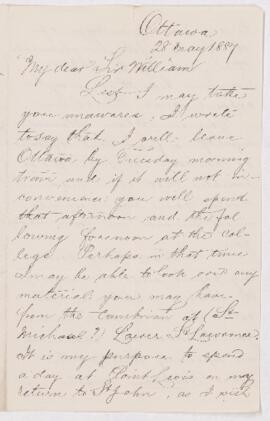 Ottawa
28 May 1887
My dear Sir William
Lest I may take
you unawares, I write
to say that I will leave
Ottawa by Tuesday morning
train, and if it will not in-
convenience you will spend
that afternoon and the fol
lowing forenoon at the Col-
lege. Perhaps in that time
I may be able to look over any
material you may have
from the Cambrian of (St.
Michael?) Lower St Lawrence.
It is my purpose to spend
a day at Point Levis on my
return to St John, as I wish